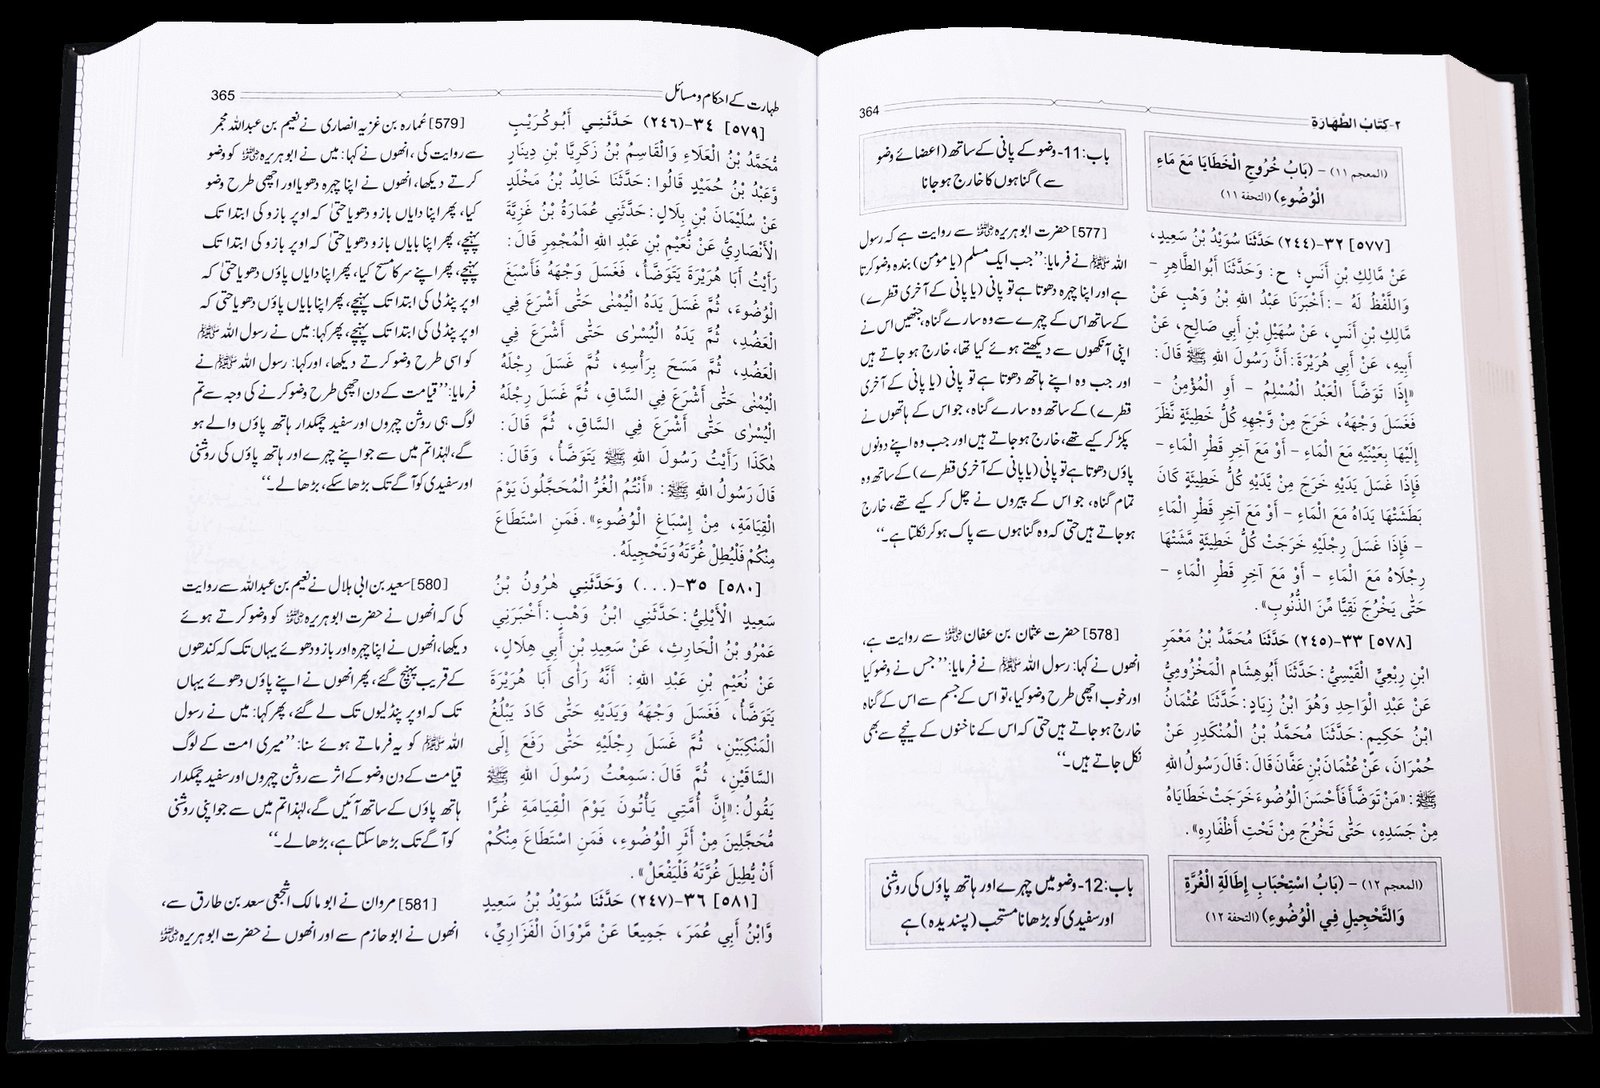 ٢-كتاب الطَّهَارَة
364
(المعجم ١١) - (بَابُ خُرُوجِ الْخَطَايَا مَعَ مَاءِ
الْوُضُوءِ) (التحفة ١١)
[٥٧٧] ٣٢-(٢٤٤) حَدَّثَنَا سُوَيْدُ بْنُ سَعِيدٍ،
عَنْ مَالِكِ بْنِ أَنَسٍ؛ ح: وَحَدَّثَنَا أَبُو الطَّاهِرِ -
وَاللَّفْظُ لَهُ -: أَخْبَرَنَا عَبْدُ اللهِ بْنُ وَهْبٍ عَنْ
مَالِكِ بْنِ أَنَسٍ، عَنْ سُهَيْلِ بْنِ أَبِي صَالِحٍ، عَنْ
أَبِيهِ، عَنْ أَبِي هُرَيْرَةَ: أَنَّ رَسُولَ اللهِ ﷺ قَالَ:
«إِذَا تَوَضَّأَ الْعَبْدُ الْمُسْلِمُ - أَوِ الْمُؤْمِنُ -
فَغَسَلَ وَجْهَهُ، خَرَجَ مِنْ وَّجْهِهِ كُلُّ خَطِيئَةٍ نَّظَرَ
إِلَيْهَا بِعَيْنَيْهِ مَعَ الْمَاءِ - أَوْ مَعَ آخِرِ قَطْرِ الْمَاءِ -
فَإِذَا غَسَلَ يَدَيْهِ خَرَجَ مِنْ يَّدَيْهِ كُلُّ خَطِيئَةٍ كَانَ
بَطَشَتْهَا يَدَاهُ مَعَ الْمَاءِ - أَوْ مَعَ آخِرِ قَطْرِ الْمَاءِ
- فَإِذَا غَسَلَ رِجْلَيْهِ خَرَجَتْ كُلُّ خَطِيئَةٍ مَّشَتْهَا
رِجْلَاهُ مَعَ الْمَاءِ - أَوْ مَعَ آخِرِ قَطْرِ الْمَاءِ -
حَتَّى يَخْرُجَ نَقِيًّا مِّنَ الذُّنُوبِ».
[٥٧٨] ٣٣-(٢٤٥) حَدَّثَنَا مُحَمَّدُ بْنُ مَعْمَرِ
ابْنِ رِبْعِيٍّ الْقَيْسِيُّ: حَدَّثَنَا أَبُو هِشَامٍ الْمَخْزُومِيُّ
عَنْ عَبْدِ الْوَاحِدِ وَهُوَ ابْنُ زِيَادٍ: حَدَّثَنَا عُثْمَانُ
ابْنُ حَكِيمٍ: حَدَّثَنَا مُحَمَّدُ بْنُ الْمُنْكَدِرِ عَنْ
حُمْرَانَ، عَنْ عُثْمَانَ بْنِ عَفَّانَ قَالَ: قَالَ رَسُولُ اللهِ
ﷺ: «مَنْ تَوَضَّأَ فَأَحْسَنَ الْوُضُوءَ خَرَجَتْ خَطَايَاهُ
مِنْ جَسَدِهِ، حَتَّى تَخْرُجَ مِنْ تَحْتِ أَظْفَارِهِ».
(المعجم ١٢) - (بَابُ اسْتِحْبَابِ إِطَالَةِ الْغُرَّةِ
وَالتَّحْجِيلِ فِي الْوُضُوءِ) (التحفة ١٢)
باب:11-وضو کے پانی کے ساتھ (اعضائے وضو
سے) گناہوں کا خارج ہو جانا
[577] حضرت ابوہریرہ رضی اللہ عنہ سے روایت ہے کہ رسول
اللہ ﷺ نے فرمایا: ”جب ایک مسلم (یا مؤمن) بندہ وضو کرتا
ہے اور اپنا چہرہ دھوتا ہے تو پانی (یا پانی کے آخری قطرے)
کے ساتھ اس کے چہرے سے وہ سارے گناہ، جنھیں اس نے
اپنی آنکھوں سے دیکھتے ہوئے کیا تھا، خارج ہو جاتے ہیں
اور جب وہ اپنے ہاتھ دھوتا ہے تو پانی (یا پانی کے آخری
قطرے) کے ساتھ وہ سارے گناہ، جو اس کے ہاتھوں نے
پکڑ کر کیے تھے، خارج ہو جاتے ہیں اور جب وہ اپنے دونوں
پاؤں دھوتا ہے تو پانی (یا پانی کے آخری قطرے) کے ساتھ وہ
تمام گناہ، جو اس کے پیروں نے چل کر کیے تھے، خارج
ہو جاتے ہیں حتی کہ وہ گناہوں سے پاک ہو کر نکلتا ہے۔“
[578] حضرت عثمان بن عفان رضی اللہ عنہ سے روایت ہے،
انھوں نے کہا: رسول اللہ ﷺ نے فرمایا: ”جس نے وضو کیا
اور خوب اچھی طرح وضو کیا، تو اس کے جسم سے اس کے گناہ
خارج ہو جاتے ہیں حتی کہ اس کے ناخنوں کے نیچے سے بھی
نکل جاتے ہیں۔“
باب:12-وضو میں چہرے اور ہاتھ پاؤں کی روشنی
اور سفیدی کو بڑھانا مستحب (پسندیدہ) ہے
طہارت کے احکام و مسائل
365
[٥٧٩] ٣٤-(٢٤٦) حَدَّثَنِي أَبُو كُرَيْبٍ
مُّحَمَّدُ بْنُ الْعَلَاءِ وَالْقَاسِمُ بْنُ زَكَرِيَّا بْنِ دِينَارٍ
وَّعَبْدُ بْنُ حُمَيْدٍ قَالُوا: حَدَّثَنَا خَالِدُ بْنُ مَخْلَدٍ
عَنْ سُلَيْمَانَ بْنِ بِلَالٍ: حَدَّثَنِي عُمَارَةُ بْنُ غَزِيَّةَ
الْأَنْصَارِيُّ عَنْ نُّعَيْمِ بْنِ عَبْدِ اللهِ الْمُجْمِرِ قَالَ:
رَأَيْتُ أَبَا هُرَيْرَةَ يَتَوَضَّأُ، فَغَسَلَ وَجْهَهُ فَأَسْبَغَ
الْوُضُوءَ، ثُمَّ غَسَلَ يَدَهُ الْيُمْنٰى حَتّٰى أَشْرَعَ فِي
الْعَضُدِ، ثُمَّ يَدَهُ الْيُسْرٰى حَتّٰى أَشْرَعَ فِي
الْعَضُدِ، ثُمَّ مَسَحَ بِرَأْسِهِ، ثُمَّ غَسَلَ رِجْلَهُ
الْيُمْنٰى حَتّٰى أَشْرَعَ فِي السَّاقِ، ثُمَّ غَسَلَ رِجْلَهُ
الْيُسْرٰى حَتّٰى أَشْرَعَ فِي السَّاقِ، ثُمَّ قَالَ:
هٰكَذَا رَأَيْتُ رَسُولَ اللهِ ﷺ يَتَوَضَّأُ، وَقَالَ:
قَالَ رَسُولُ اللهِ ﷺ: «أَنْتُمُ الْغُرُّ الْمُحَجَّلُونَ يَوْمَ
الْقِيَامَةِ، مِنْ إِسْبَاغِ الْوُضُوءِ». فَمَنِ اسْتَطَاعَ
مِنْكُمْ فَلْيُطِلْ غُرَّتَهُ وَتَحْجِيلَهُ.
[٥٨٠] ٣٥-(...) وَحَدَّثَنِي هٰرُونُ بْنُ
سَعِيدٍ الْأَيْلِيُّ: حَدَّثَنِي ابْنُ وَهْبٍ: أَخْبَرَنِي
عَمْرُو بْنُ الْحَارِثِ، عَنْ سَعِيدِ بْنِ أَبِي هِلَالٍ،
عَنْ نُعَيْمِ بْنِ عَبْدِ اللهِ: أَنَّهُ رَأٰى أَبَا هُرَيْرَةَ
يَتَوَضَّأُ، فَغَسَلَ وَجْهَهُ وَيَدَيْهِ حَتّٰى كَادَ يَبْلُغُ
الْمَنْكِبَيْنِ، ثُمَّ غَسَلَ رِجْلَيْهِ حَتّٰى رَفَعَ إِلَى
السَّاقَيْنِ، ثُمَّ قَالَ: سَمِعْتُ رَسُولَ اللهِ ﷺ
يَقُولُ: «إِنَّ أُمَّتِي يَأْتُونَ يَوْمَ الْقِيَامَةِ غُرًّا
مُّحَجَّلِينَ مِنْ أَثَرِ الْوُضُوءِ، فَمَنِ اسْتَطَاعَ مِنْكُمْ
أَنْ يُّطِيلَ غُرَّتَهُ فَلْيَفْعَلْ».
[٥٨١] ٣٦-(٢٤٧) حَدَّثَنَا سُوَيْدُ بْنُ سَعِيدٍ
وَّابْنُ أَبِي عُمَرَ، جَمِيعًا عَنْ مَّرْوَانَ الْفَزَارِيِّ،
[579] عُمارہ بن غزیہ انصاری نے نعیم بن عبداللہ مجمر
سے روایت کی، انھوں نے کہا: میں نے ابوہریرہ رضی اللہ عنہ کو وضو
کرتے دیکھا، انھوں نے اپنا چہرہ دھویا اور اچھی طرح وضو
کیا، پھر اپنا دایاں بازو دھویا حتیٰ کہ اوپر بازو کی ابتدا تک
پہنچے، پھر اپنا بایاں بازو دھویا حتیٰ کہ اوپر بازو کی ابتدا تک
پہنچے، پھر اپنے سر کا مسح کیا، پھر اپنا دایاں پاؤں دھویا حتیٰ کہ
اوپر پنڈلی کی ابتدا تک پہنچے، پھر اپنا بایاں پاؤں دھویا حتی کہ
اوپر پنڈلی کی ابتدا تک پہنچے، پھر کہا: میں نے رسول اللہ ﷺ
کو اسی طرح وضو کرتے دیکھا، اور کہا: رسول اللہ ﷺ نے
فرمایا: ”قیامت کے دن اچھی طرح وضو کرنے کی وجہ سے تم
لوگ ہی روشن چہروں اور سفید چمکدار ہاتھ پاؤں والے ہو
گے، لہٰذا تم میں سے جو اپنے چہرے اور ہاتھ پاؤں کی روشنی
اور سفیدی کو آگے تک بڑھا سکے، بڑھا لے۔“
[580] سعید بن ابی ہلال نے نعیم بن عبداللہ سے روایت
کی کہ انھوں نے حضرت ابوہریرہ رضی اللہ عنہ کو وضو کرتے ہوئے
دیکھا، انھوں نے اپنا چہرہ اور بازو دھوئے یہاں تک کہ کندھوں
کے قریب پہنچ گئے، پھر انھوں نے اپنے پاؤں دھوئے یہاں
تک کہ اوپر پنڈلیوں تک لے گئے، پھر کہا: میں نے رسول
اللہ ﷺ کو یہ فرماتے ہوئے سنا: ”میری امت کے لوگ
قیامت کے دن وضو کے اثر سے روشن چہروں اور سفید چمکدار
ہاتھ پاؤں کے ساتھ آئیں گے، لہٰذا تم میں سے جو اپنی روشنی
کو آگے تک بڑھا سکتا ہے، بڑھا لے۔“
[581] مروان نے ابو مالک اشجعی سعد بن طارق سے،
انھوں نے ابو حازم سے اور انھوں نے حضرت ابوہریرہ رضی اللہ عنہ